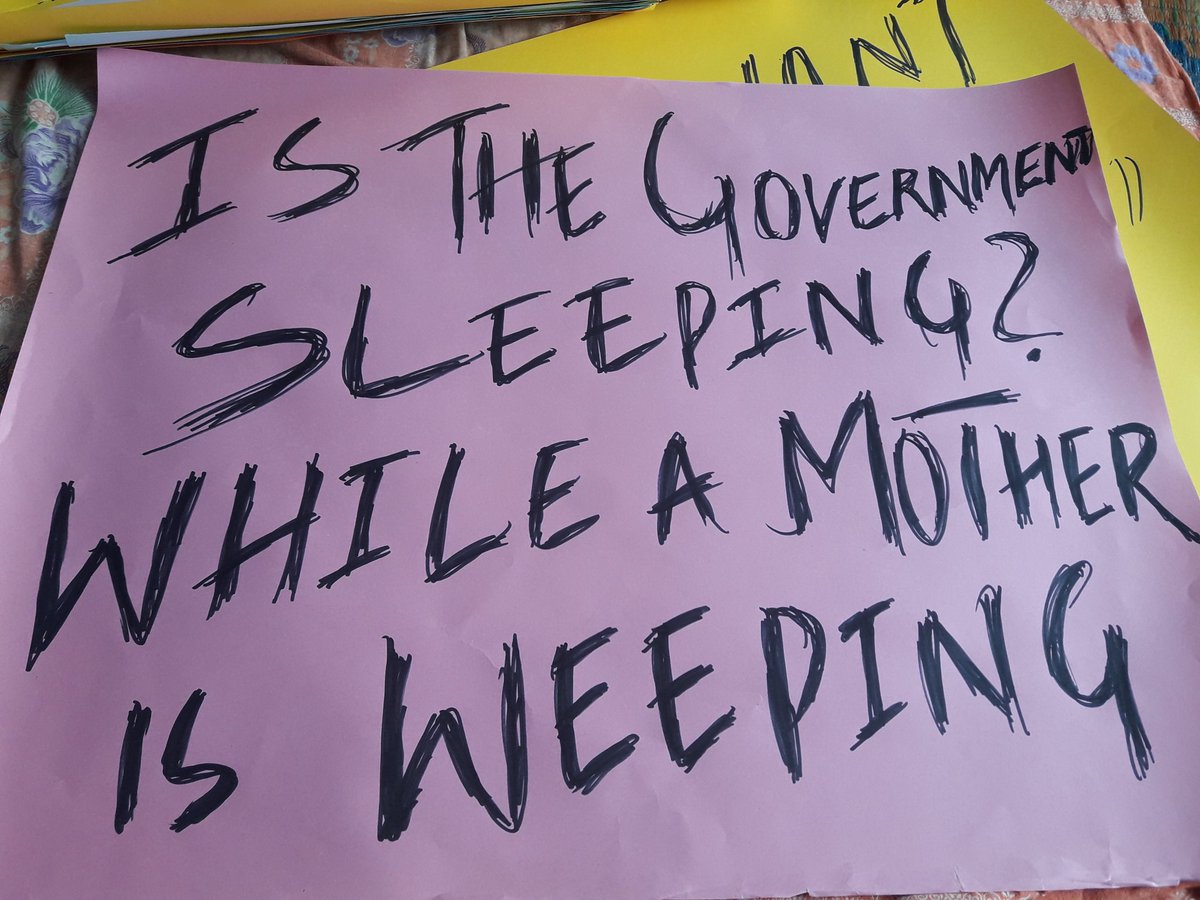 IS THE GOVERNMENT
SLEEPING?
WHILE A MOTHER
IS WEEPING